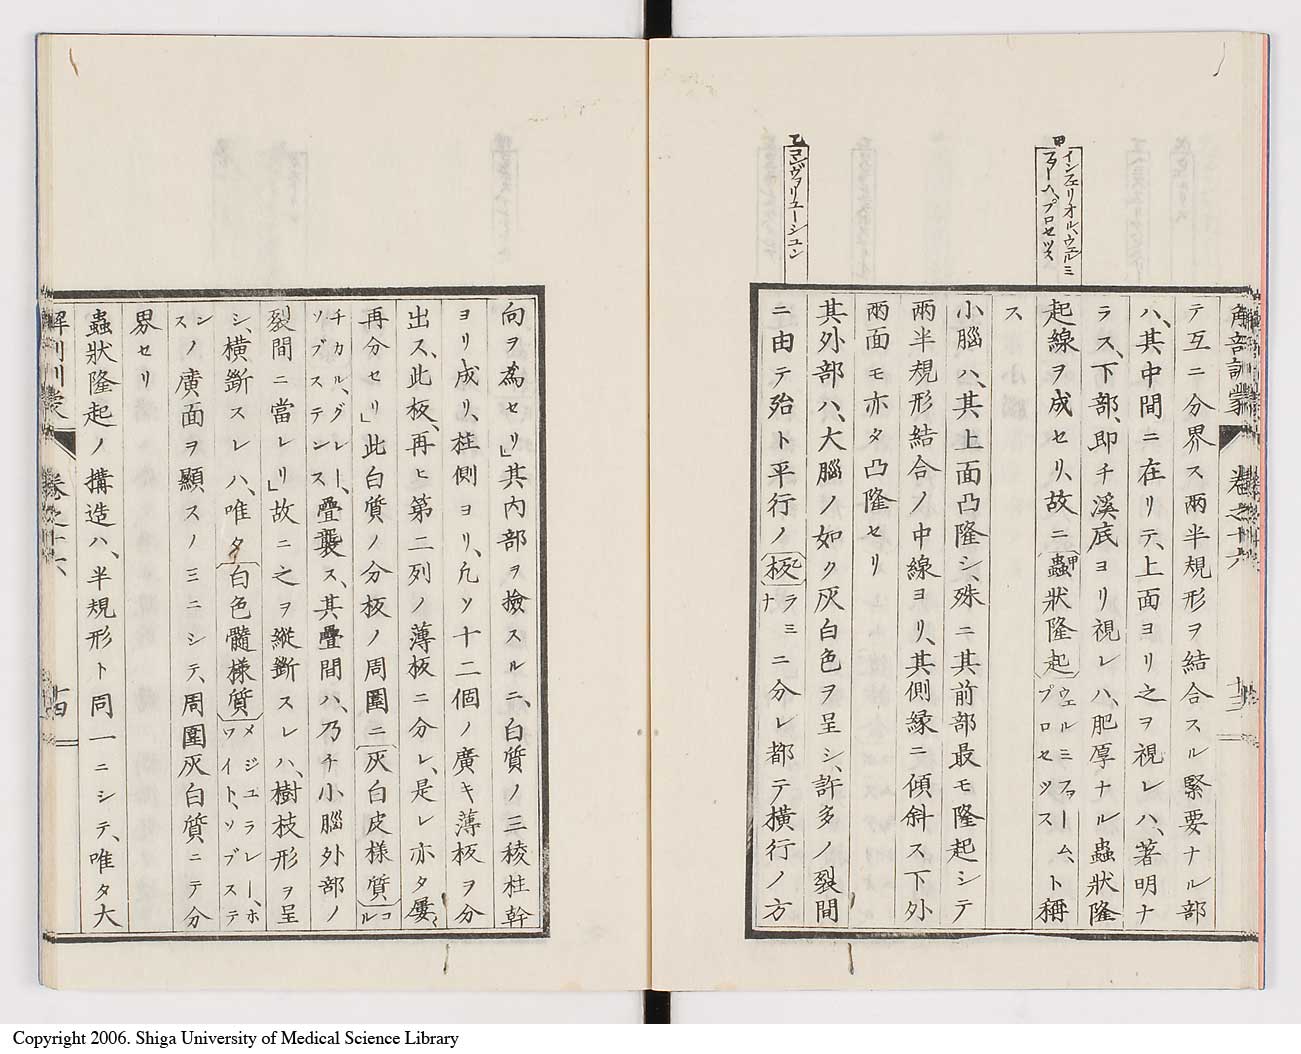 解剖訓蒙
卷之十六
十三
甲
インフェリオル、ウェルミ
ファーム、プロセッス
乙
コンヴァリューシュン
テ互ニ分界ス兩半規形ヲ結合スル緊要ナル部
ハ、其中間ニ在リテ、上面ヨリ之ヲ視レハ、著明ナ
ラス、下部、即チ溪底ヨリ視レハ、肥厚ナル蟲狀隆
起線ヲ成セリ、故ニ蟲狀隆起ウェルミファーム、プロセッスト稱
ス
小腦ハ、其上面凸隆シ、殊ニ其前部最モ隆起シテ
兩半規形結合ノ中線ヨリ、其側緣ニ傾斜ス下外
兩面モ亦タ凸隆セリ
其外部ハ、大腦ノ如ク灰白色ヲ呈シ、許多ノ裂間
ニ由テ殆ト平行ノ板ラミナニ分レ都テ橫行ノ方
向ヲ為セリ」其內部ヲ撿スルニ、白質ノ三稜柱幹
ヨリ成リ、柱側ヨリ、凢ソ十二個ノ廣キ薄板ヲ分
出ス、此板、再ヒ第二列ノ薄板ニ分レ、是レ亦タ屢々
再分セリ」此白質ノ分板ノ周圍ニ灰白皮樣質コル
チカル、グレー、ソブステンス疊襲ス、其疊間ハ、乃チ小腦外部ノ
裂間ニ當レリ」故ニ之ヲ縱斷スレハ、樹枝形ヲ呈
シ、橫斷スレハ、唯タ白色髓樣質メジュラレー、ホワイト、ソブステ
ンスノ廣面ヲ顯スノミニシテ、周圍灰白質ニテ分
界セリ
蟲狀隆起ノ搆造ハ、半規形ト同一ニシテ、唯タ大
解剖訓蒙
卷之十六
十四
Copyright 2006. Shiga University of Medical Science Library